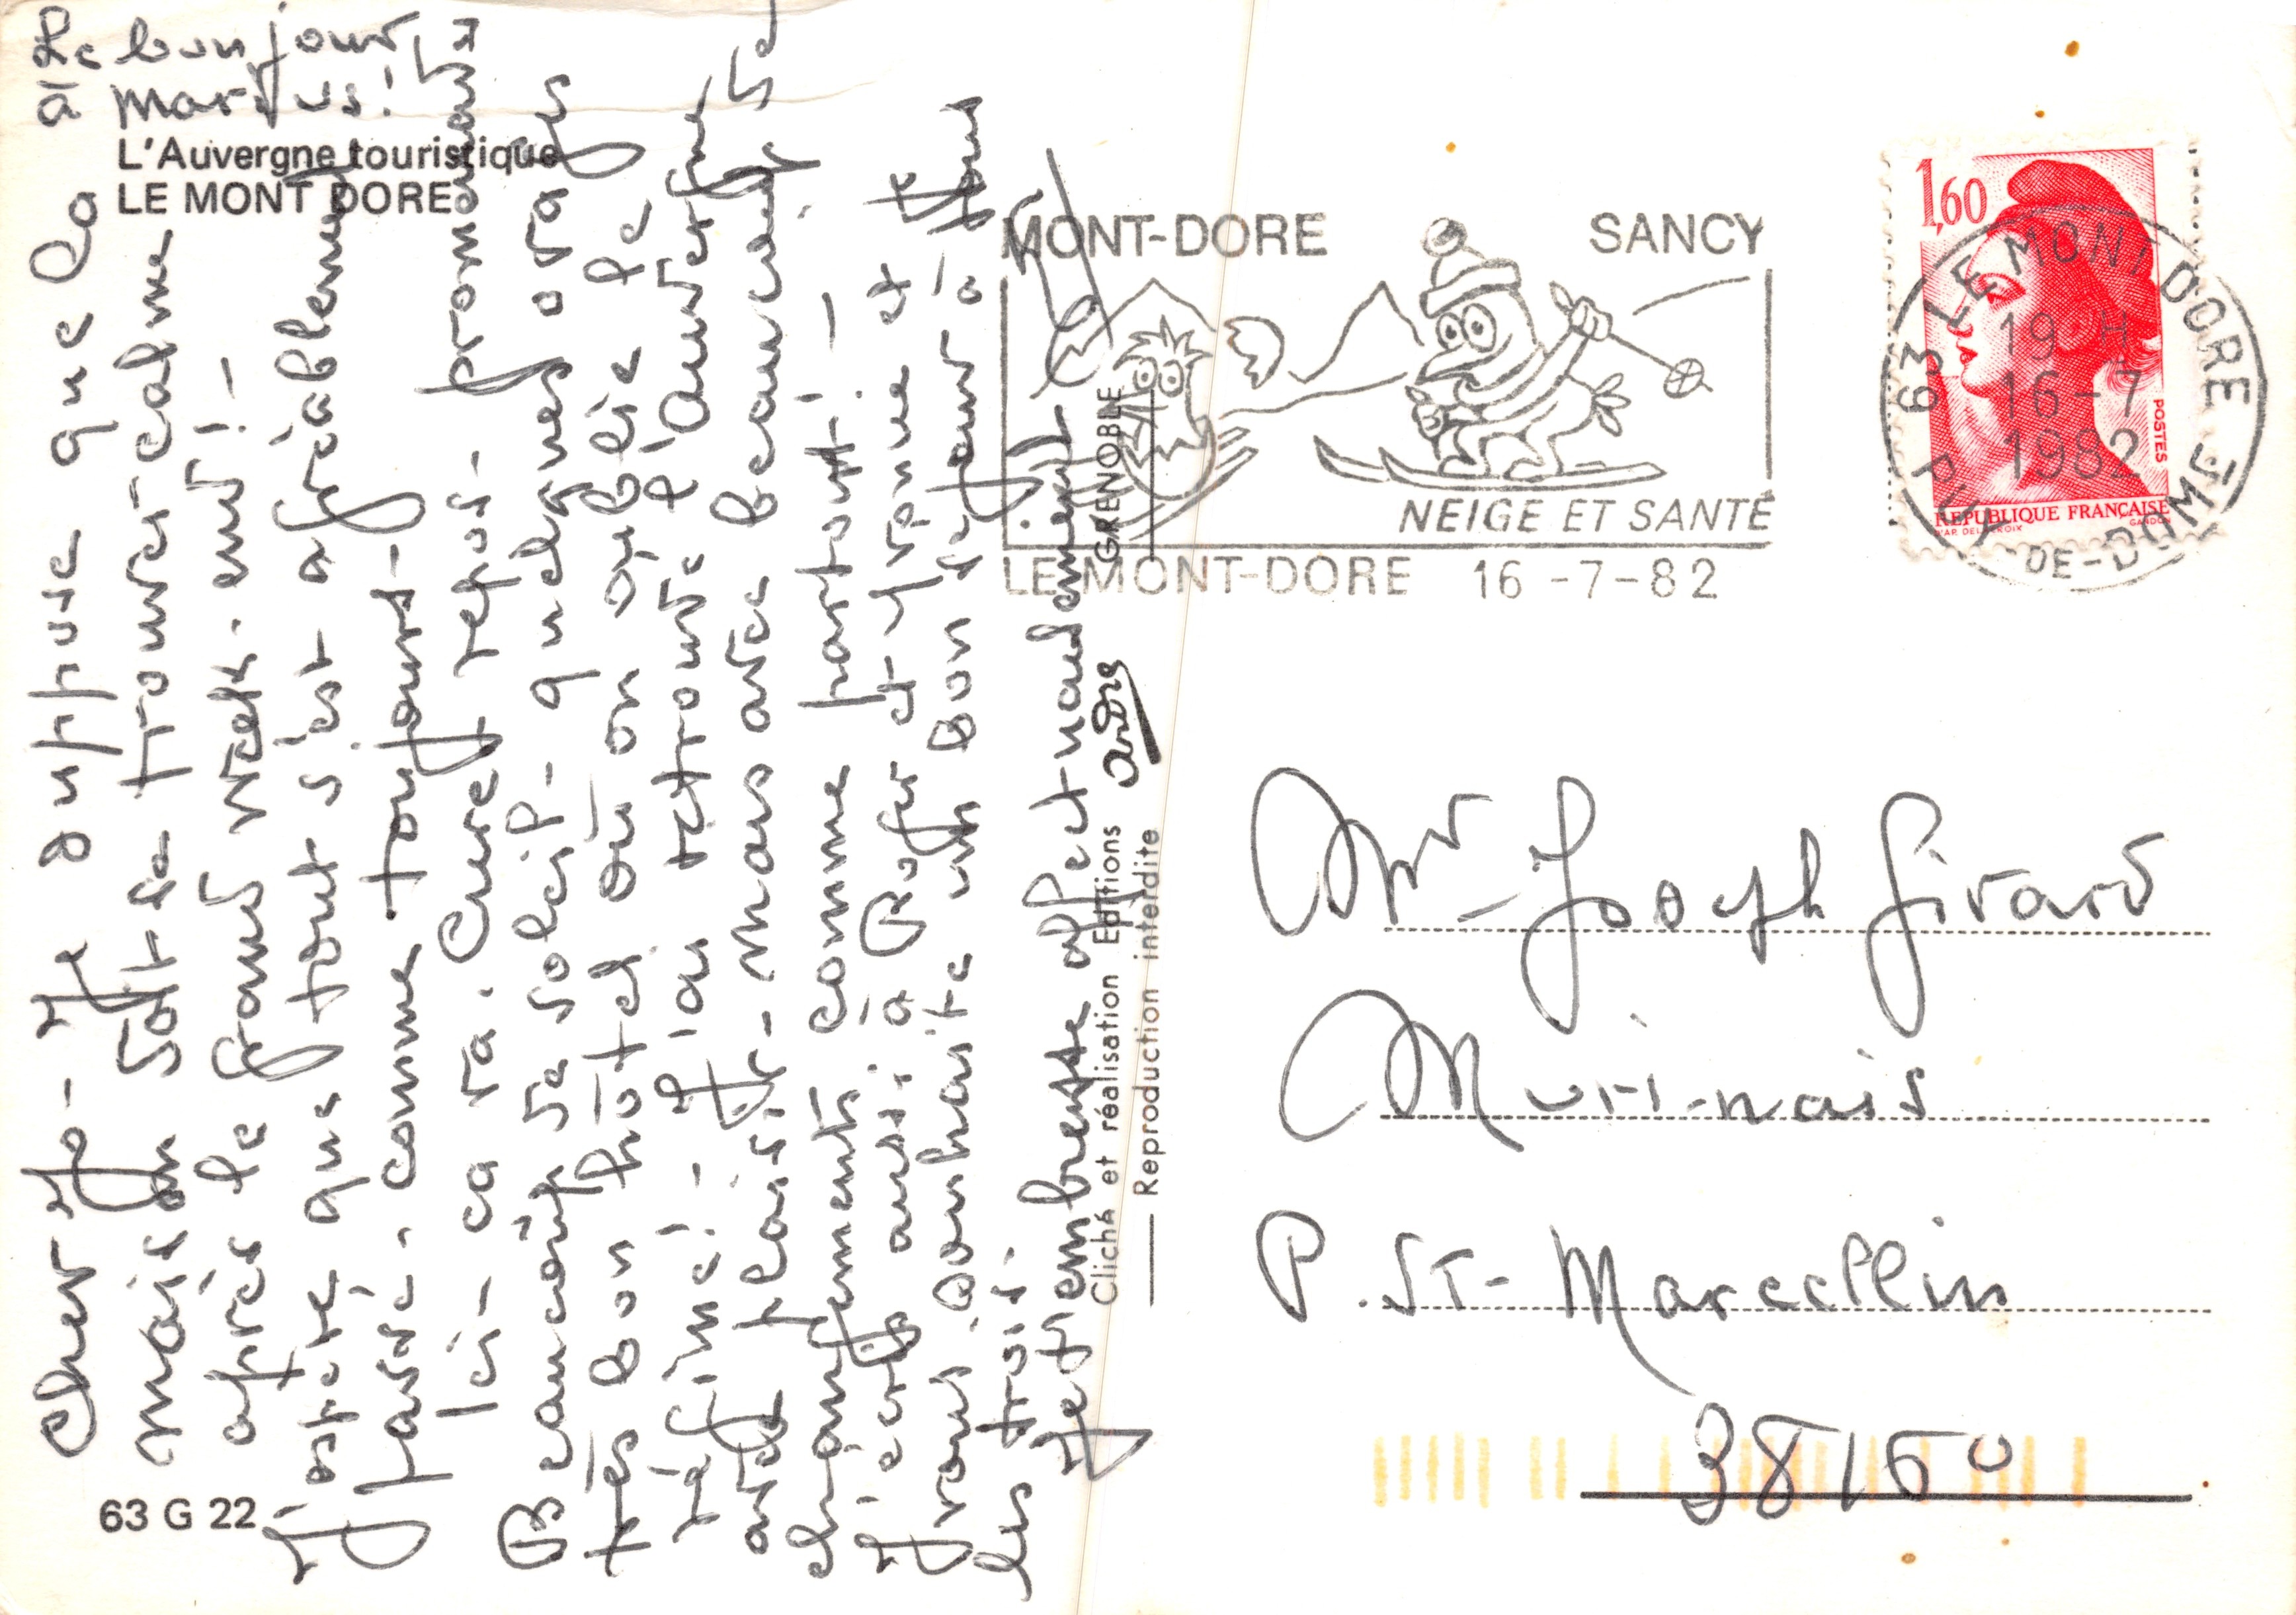 Le bonjour
à Marius!
L'Auvergne touristique
LE MONT DORE
Cher Jo - Je suppose que la
maison doit te trouver calme
après le grand week-end! -
J'espère que tout s'est agréablement
passé, comme toujours -
Ici - ça va. Cure, repos - promenades
Beaucoup de soleil - quelques orages
très bon hôtel où on oublie le
régime! - J'ai retrouvé l'Auvergne
avec plaisir - mais avec beaucoup de
changements comme partout! -
J'écris aussi à Roger et Yvonne et
vous souhaite un bon séjour à tous
les trois.
Je t'embrasse affectueusement
63 G 22
Cliché et réalisation Editions André GRENOBLE
Reproduction interdite
MONT-DORE SANCY
NEIGE ET SANTÉ
LE MONT-DORE 16 -7-82
1,60
POSTES
REPUBLIQUE FRANÇAISE
D'AP. DELACROIX GANDON
63 LE MONT DORE
19 H
16-7
1982
PUY-DE-DOME
Mr Joseph Girard
Murinais
P. St-Marcellin
38160